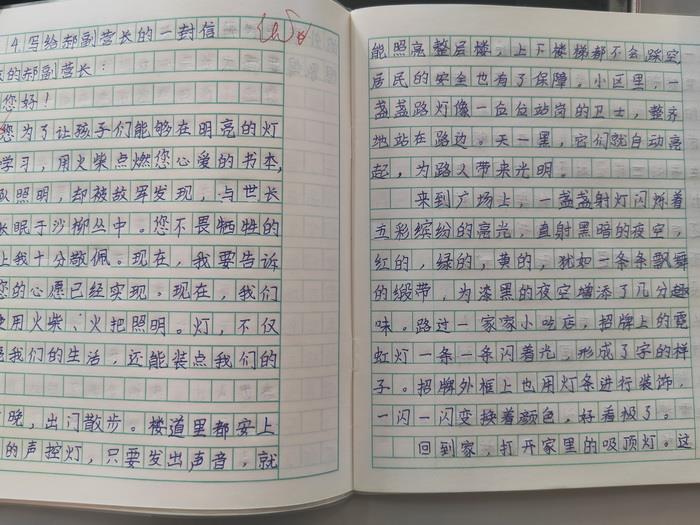 4.写给郝副营长的一封信
的郝副营长:
您好!
您为了让孩子们能够在明亮的灯
学习,用火柴点燃您心爱的书本,
队照明,却被敌军发现,与世长
眠于沙柳丛中。您不畏牺牲的
上我十分敬佩。现在,我要告诉
您的心愿已经实现。现在,我们
使用火柴、火把照明。灯,不仅
我们的生活,还能装点我们的
晚,出门散步。楼道里都安上
的声控灯,只要发出声音,就
能照亮整层楼,上下楼梯都不会踩空
居民的安全也有了保障。小区里,一
盏盏路灯像一位位站岗的卫士,整齐
地站在路边。天一黑,它们就自动亮
起,为路人带来光明。
来到广场上,一盏盏射灯闪烁着
五彩缤纷的亮光,直射黑暗的夜空,
红的,绿的,黄的,犹如一条条飘舞
的缎带,为漆黑的夜空增添了几分趣
味。路过一家家小吃店,招牌上的霓
虹灯一条一条闪着光,形成了字的样
子。招牌外框上也用灯条进行装饰,
一闪一闪变换着颜色,好看极了。
回到家,打开家里的吸顶灯。这